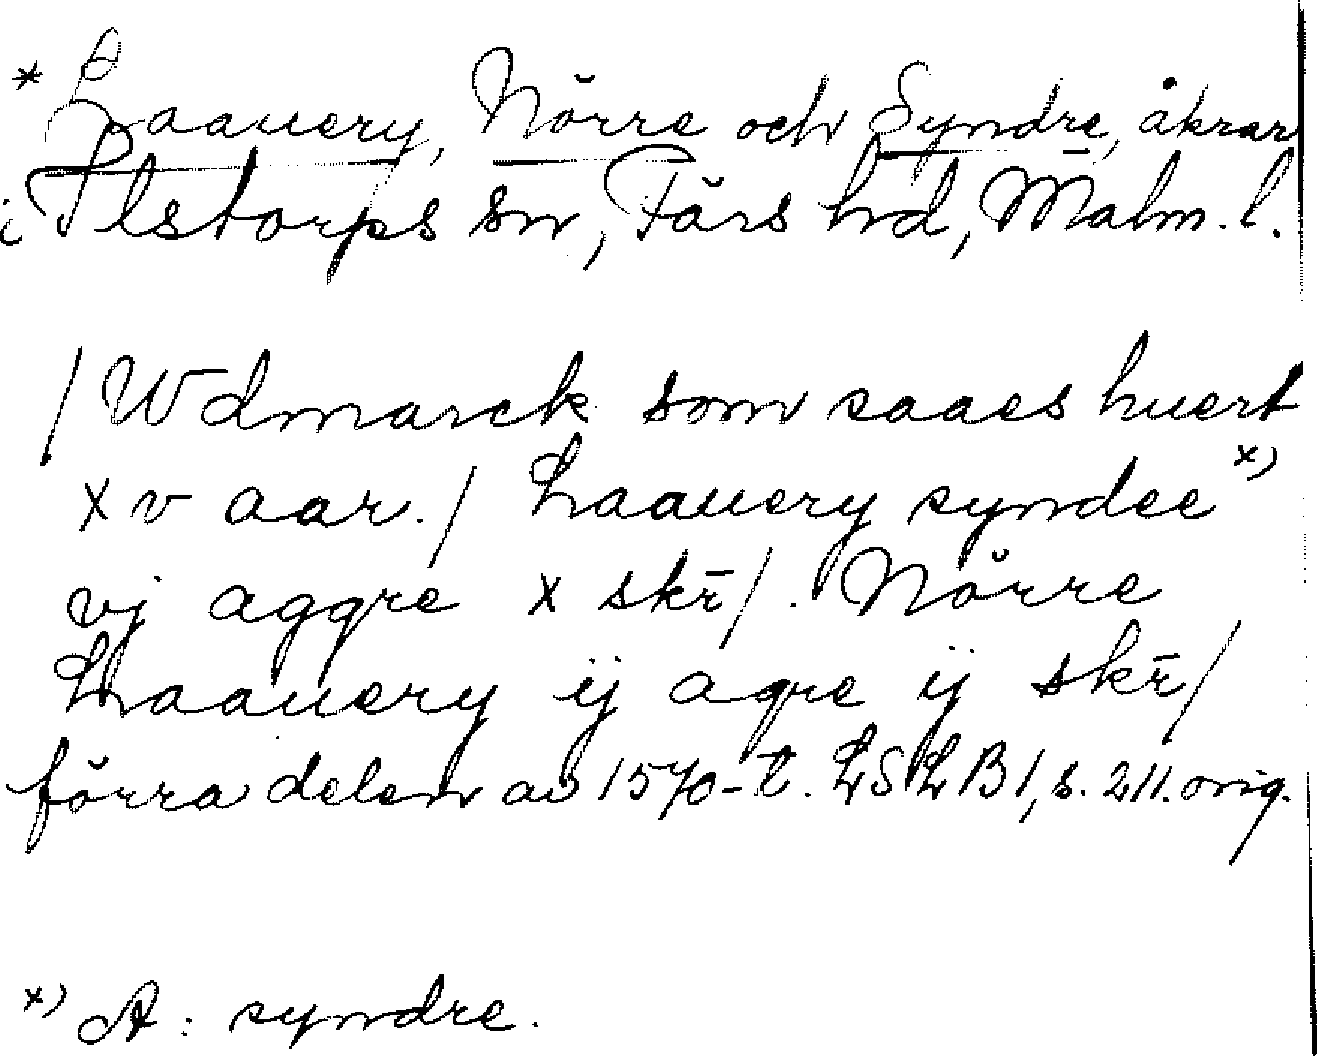 * Laauery, Nörre och Syndre, åkrar
i Ilstorps sn, Färs hd, Malm. l.
/ Wdmarck som saaes huert
xv aar. / Laauery syndee x)
vj aggre x skr̄ /. Nörre
Laauery ij agre ij skr̄ /
förra delen av 1570-t. LSLB 1, s. 211. orig.
x) A: syndre.